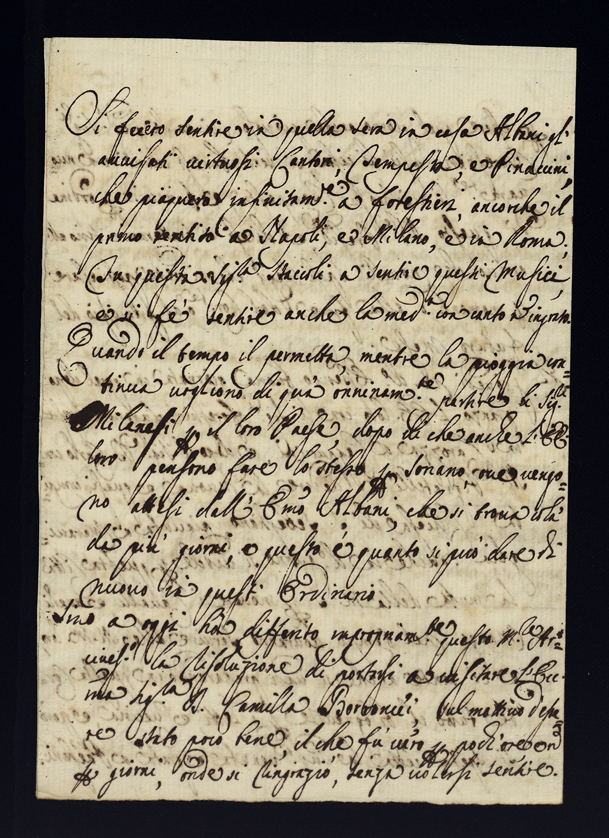 Si fecero sentire in quella sera in casa Albani gl'
avvisati virtuosi Cantori, Tempesta, e Pinacini,
che piaquero infinitam.te a forestieri, ancorche il
primo sentito a Napoli, e Milano, e in Roma.
In questa vig.a Staccoli a sentire questi Musici,
e si fé sentire anche la med.a con canto
Quando il tempo il permetta, mentre la pioggia con=
tinua vogliono di quà onninam.te partire li Sig.ri
Milanesi p il loro Paese, dopo di che anche l'EE.
loro pensono fare lo stesso p Soriano, ove vengo=
no attesi dall' Emo Albani, che si trova colà
da più giorni, e questo é quanto si può dare di
nuovo in questi Ordinario
Sino a oggi hà differito questo M.re Ar=
cives.o la risoluzione di portarsi a visitare l'Ecc.
ma Sig.ra D. Camilla Borbonici, sul mottivo d'esse
re stato poco bene, il che fù vero p pochi ore
p giorni, onde si ringraziò, senza sentire.